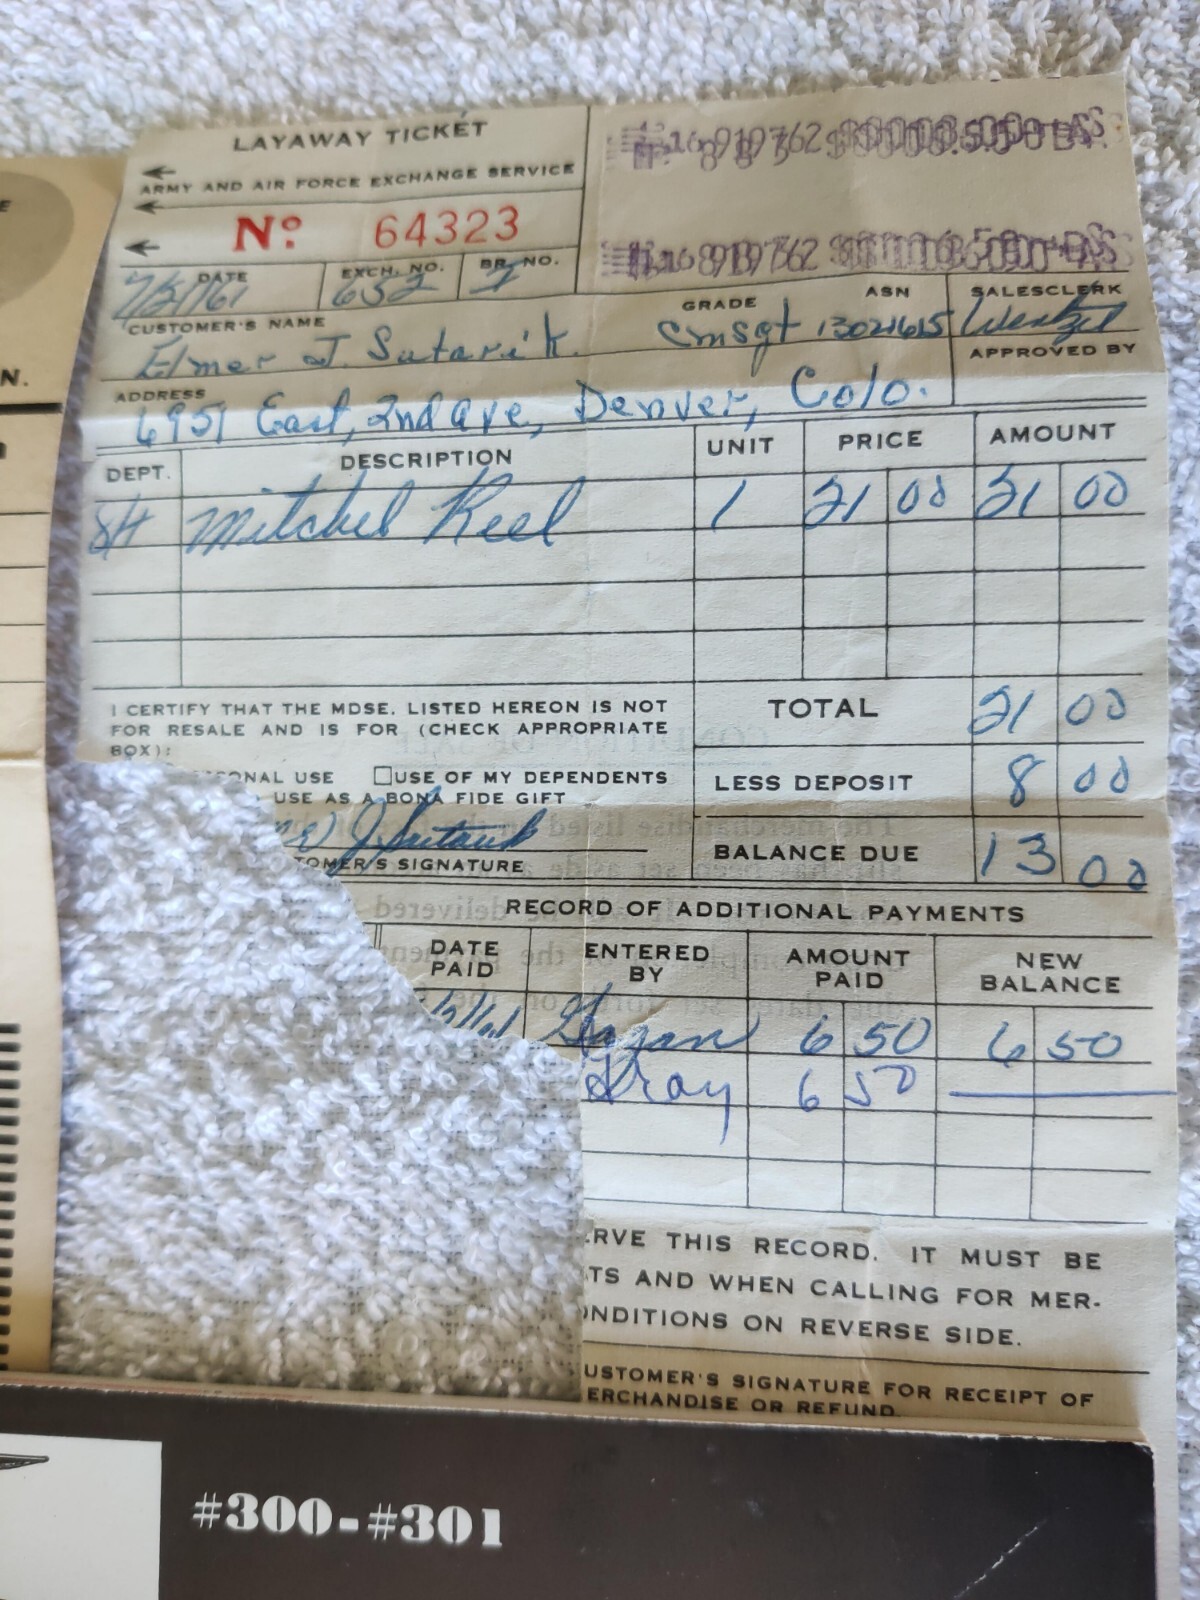 LAYAWAY TICKET
ARMY AND AIR FORCE EXCHANGE SERVICE
Nº. 64323
DATE EXCH. NO. BR. NO.
652 1
CUSTOMER'S NAME GRADE ASN SALESCLERK
Elmer J. Sutarik. Cmsgt 13021615
APPROVED BY
ADDRESS
6951 East, 2nd Ave, Denver, Colo.
DEPT. DESCRIPTION UNIT PRICE AMOUNT
Mitchel Reel 1 21 00 21 00
TOTAL 21 00
I CERTIFY THAT THE MDSE. LISTED HEREON IS NOT
FOR RESALE AND IS FOR (CHECK APPROPRIATE
BOX):
ONAL USE USE OF MY DEPENDENTS
USE AS A BONA FIDE GIFT
LESS DEPOSIT 8 00
J. Sutarik
TOMER'S SIGNATURE
BALANCE DUE 13 00
RECORD OF ADDITIONAL PAYMENTS
DATE PAID ENTERED BY AMOUNT PAID NEW BALANCE
6 50 6 50
Gray 6 50
RVE THIS RECORD. IT MUST BE
TS AND WHEN CALLING FOR MER-
NDITIONS ON REVERSE SIDE.
USTOMER'S SIGNATURE FOR RECEIPT OF
ERCHANDISE OR REFUND.
N.
#300-#301